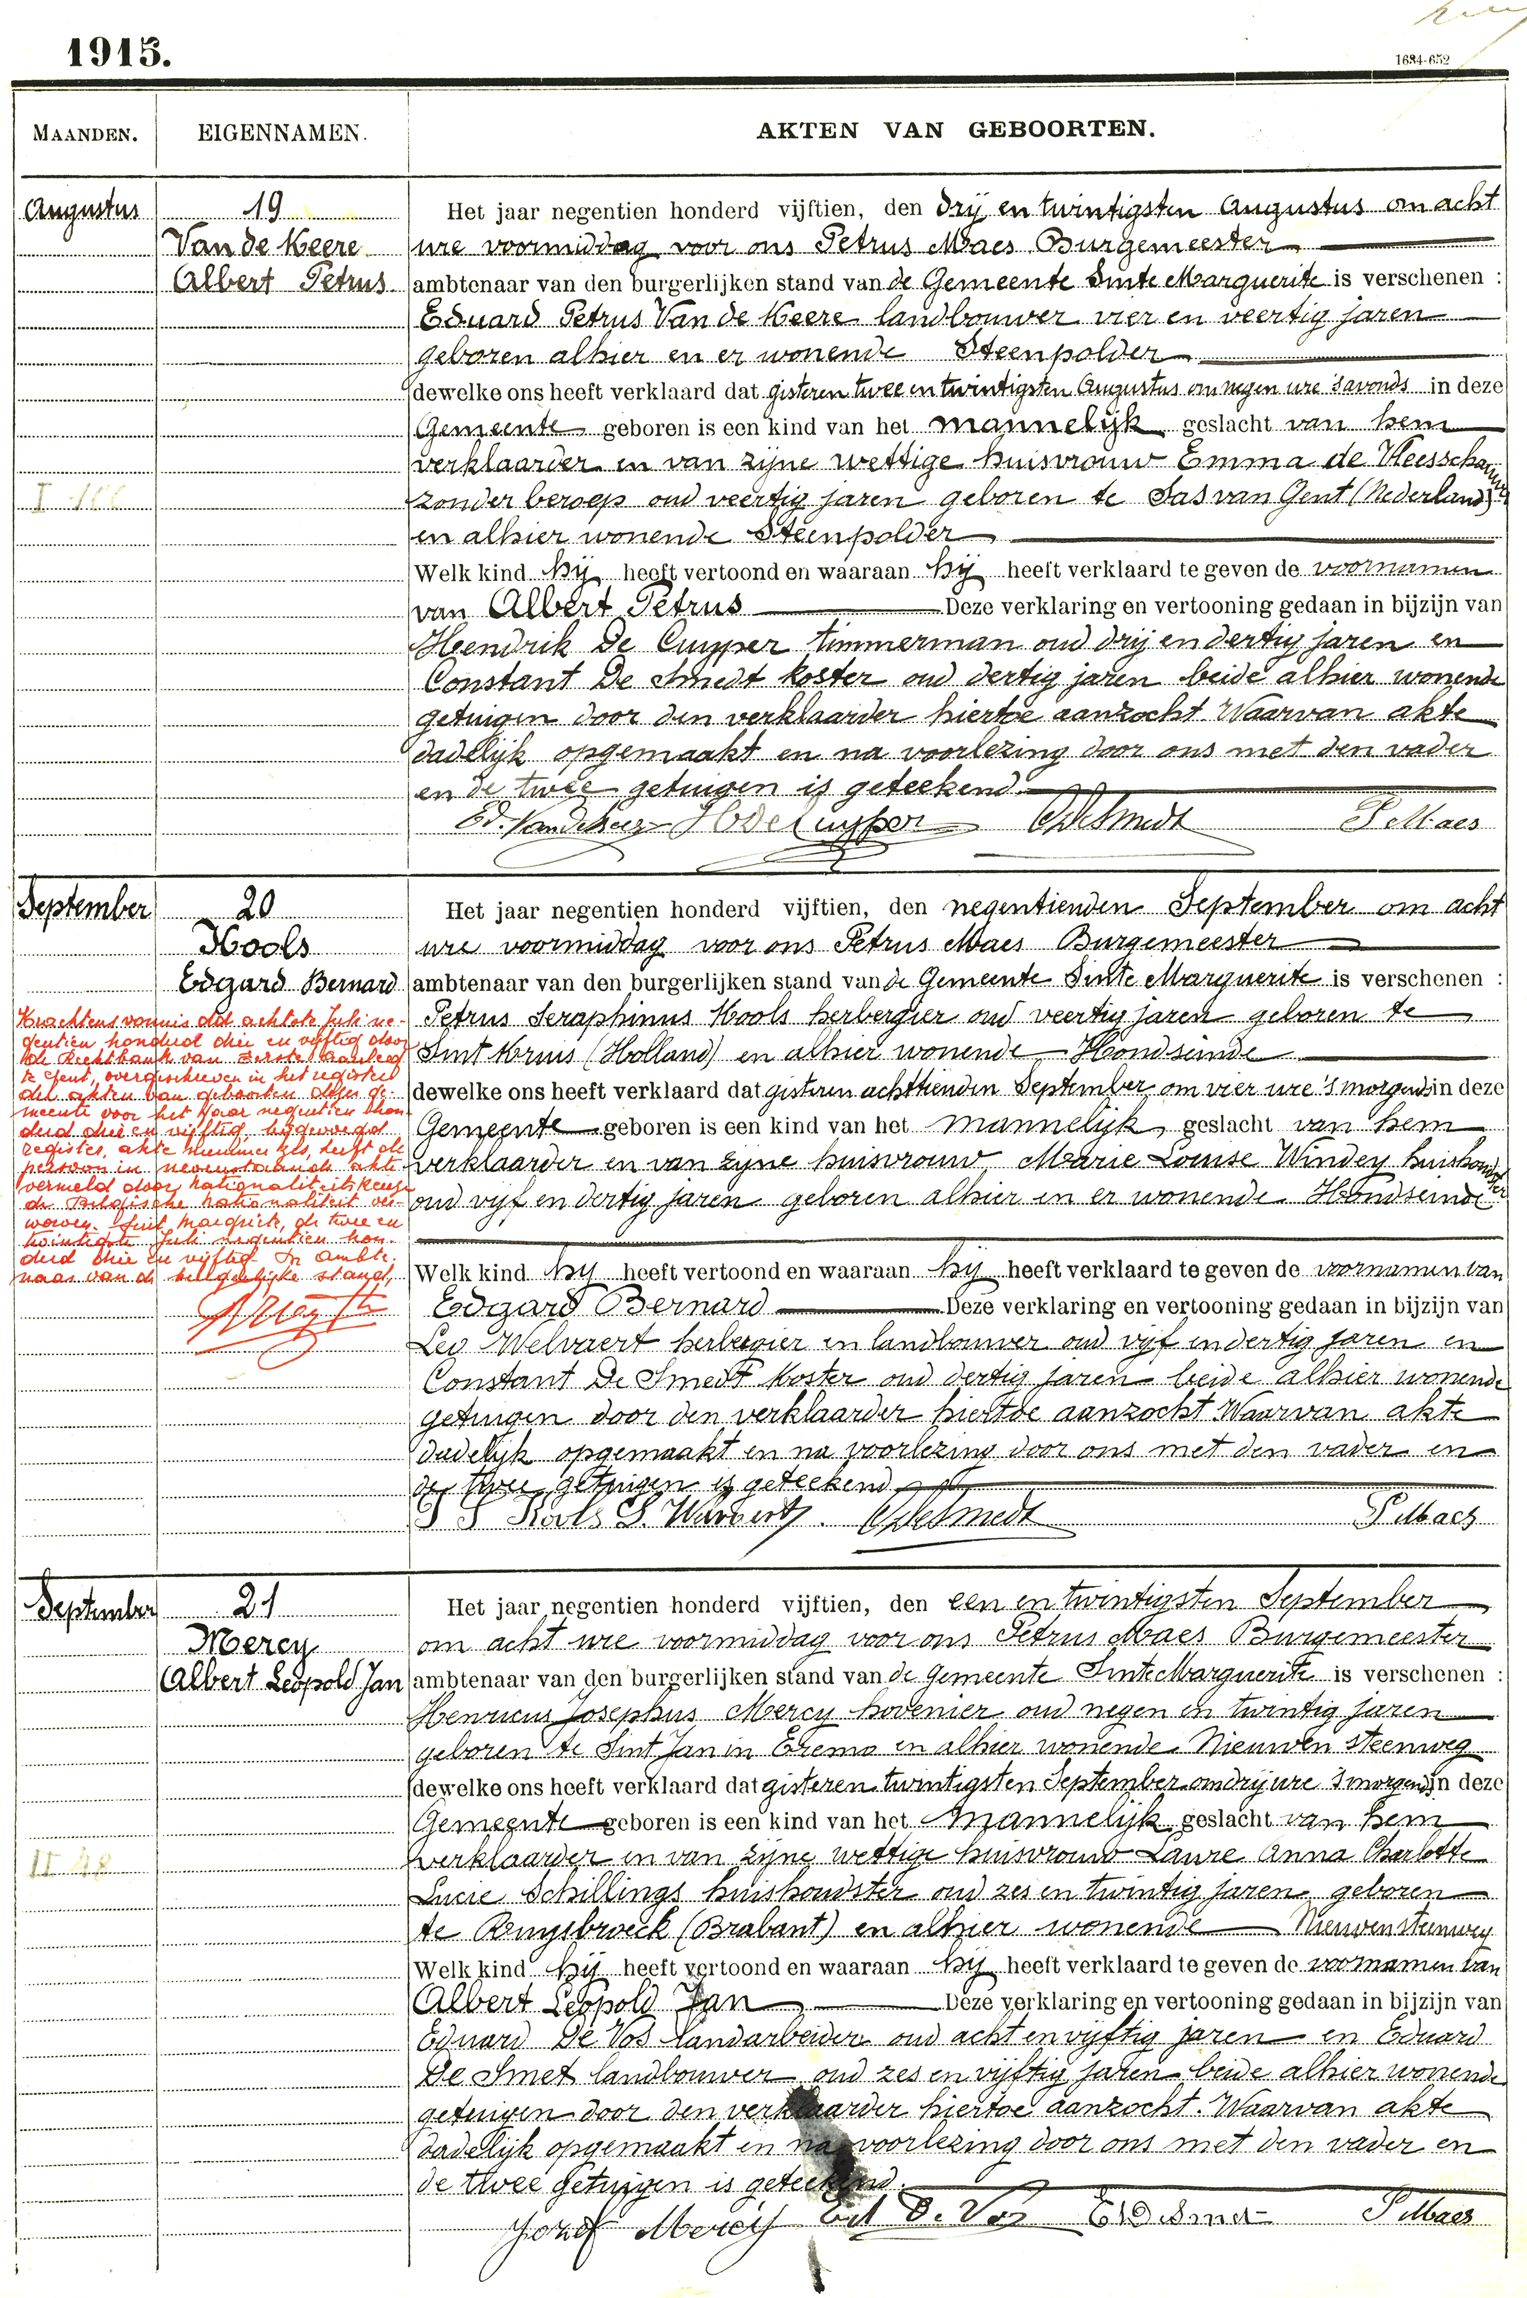 1915.
1684-652
MAANDEN.
EIGENNAMEN.
AKTEN VAN GEBOORTEN.
Augustus
19
Van de Keere
Albert Petrus.
Het jaar negentien honderd vijftien, den drij en twintigsten Augustus om acht
ure voormiddag voor ons Petrus Maes Burgemeester
ambtenaar van den burgerlijken stand van de Gemeente Sinte Marguerite is verschenen :
Eduard Petrus Van de Keere landbouwer vier en veertig jaren
geboren alhier en er wonende Steenpolder
dewelke ons heeft verklaard dat gisteren twee en twintigsten Augustus om negen ure 's avonds in deze
Gemeente geboren is een kind van het mannelijk geslacht van hem
verklaarder en van zijne wettige huisvrouw Emma de Vleesschauwer
zonder beroep oud veertig jaren geboren te Sas van Gent (Nederland)
en alhier wonende Steenpolder
Welk kind hij heeft vertoond en waaraan hij heeft verklaard te geven de voornamen
van Albert Petrus Deze verklaring en vertooning gedaan in bijzijn van
Hendrik De Cuyper timmerman oud drij en dertig jaren en
Constant De Smedt koster oud dertig jaren beide alhier wonende
getuigen door den verklaarder hiertoe aanzocht Waarvan akte
dadelijk opgemaakt en na voorlezing door ons met den vader
en de twee getuigen is geteekend.
Ed. Vandekeere H De Cuyper C DeSmedt P Maes
September
20
Hools
Edgard Bernard
Krachtens vonnis dd achtste Juli ne-
gentien honderd drie en vijftig door
de Rechtbank van Eerste Aanleg
te Gent, overgeschreven in het register
der akten van geboorten dezer ge-
meente voor het jaar negentien hon
derd drie en vijftig, bijgevoegd
register, akte nummer zes, heeft de
persoon in nevenstaande akte
vermeld door nationaliteitskeuze
de Belgische nationaliteit ver-
worven. Sint Margriete, de twee en
twintigste Juli negentien hon-
derd drie en vijftig De Ambte-
naar van de burgerlijke stand,
Het jaar negentien honderd vijftien, den negentienden September om acht
ure voormiddag voor ons Petrus Maes Burgemeester
ambtenaar van den burgerlijken stand van de Gemeente Sinte Marguerite is verschenen :
Petrus Seraphinus Hools herbergier oud veertig jaren geboren te
Sint Kruis (Holland) en alhier wonende Hondseinde
dewelke ons heeft verklaard dat gisteren achttienden September om vier ure 's morgends in deze
Gemeente geboren is een kind van het mannelijk geslacht van hem
verklaarder en van zijne huisvrouw Marie Louise Windey huishoudster
oud vijf en dertig jaren geboren alhier en er wonende Hondseinde
Welk kind hij heeft vertoond en waaraan hij heeft verklaard te geven de voornamen van
Edgard Bernard Deze verklaring en vertooning gedaan in bijzijn van
Leo Welvaert herbergier en landbouwer oud vijf en dertig jaren en
Constant De Smedt Koster oud dertig jaren beide alhier wonende
getuigen door den verklaarder hiertoe aanzocht Waarvan akte
dadelijk opgemaakt en na voorlezing door ons met den vader en
de twee getuigen is geteekend
P S Hools C DeSmedt P Maes
September
21
Mercy
Albert Leopold Jan
Het jaar negentien honderd vijftien, den een en twintigsten September
om acht ure voormiddag voor ons Petrus Maes Burgemeester
ambtenaar van den burgerlijken stand van de Gemeente Sinte Marguerite is verschenen :
Henricus Josephus Mercy hovenier oud negen en twintig jaren
geboren te Sint Jan in Eremo en alhier wonende Nieuwen steenweg
dewelke ons heeft verklaard dat gisteren twintigsten September om drij ure 's morgends in deze
Gemeente geboren is een kind van het mannelijk geslacht van hem
verklaarder en van zijne wettige huisvrouw Laure Anna Charlotte
Lucie Schillings huishoudster oud zes en twintig jaren geboren
te Ruysbroeck (Brabant) en alhier wonende Nieuwen steenweg
Welk kind hij heeft vertoond en waaraan hij heeft verklaard te geven de voornamen van
Albert Leopold Jan Deze verklaring en vertooning gedaan in bijzijn van
Eduard De Vos landarbeider oud acht en vijftig jaren en Eduard
De Smet landbouwer oud zes en vijftig jaren beide alhier wonende
getuigen door den verklaarder hiertoe aanzocht. Waarvan akte
dadelijk opgemaakt en na voorlezing door ons met den vader en
de twee getuigen is geteekend.
Jozef Mercij Ed De Vos E D Smet P Maes